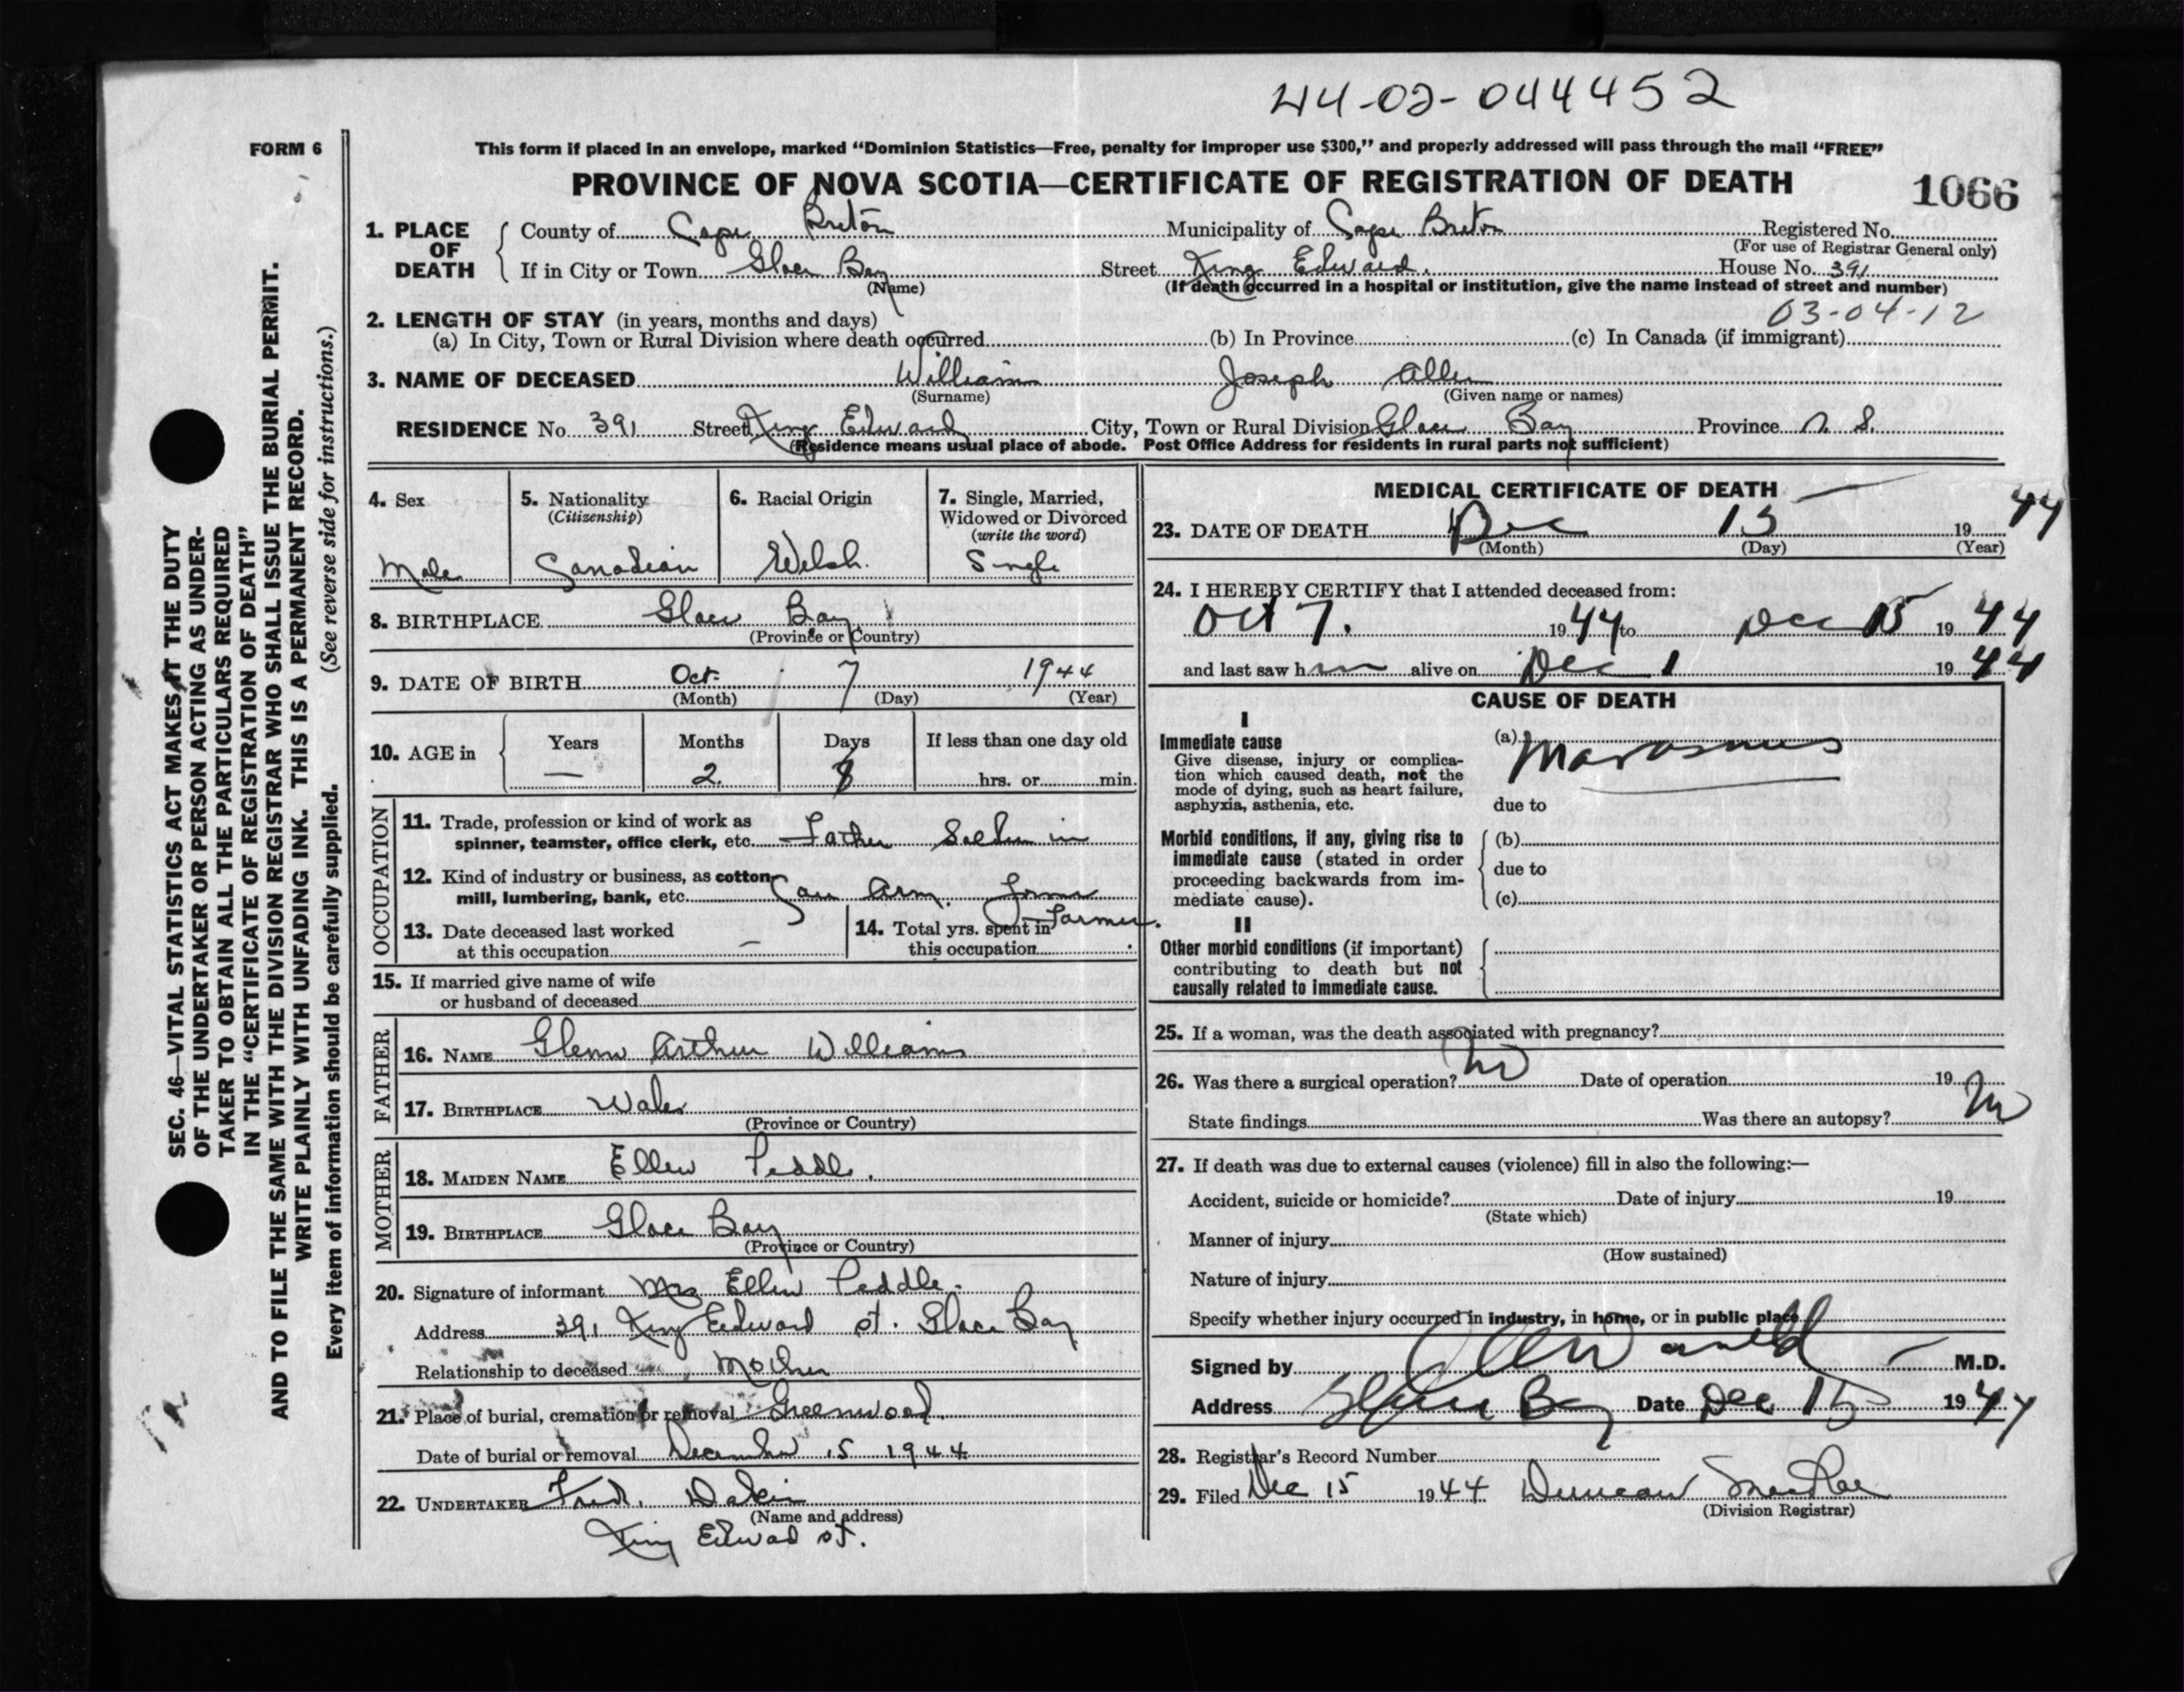 44-02-044452
FORM 6
This form if placed in an envelope, marked “Dominion Statistics—Free, penalty for improper use $300,” and properly addressed will pass through the mail “FREE”
PROVINCE OF NOVA SCOTIA—CERTIFICATE OF REGISTRATION OF DEATH
1066
1. PLACE OF DEATH
County of Cape Breton Municipality of Cape Breton Registered No.
(For use of Registrar General only)
If in City or Town Glace Bay Street King Edward. House No. 391
(Name) (If death occurred in a hospital or institution, give the name instead of street and number)
03-04-12
2. LENGTH OF STAY (in years, months and days)
(a) In City, Town or Rural Division where death occurred (b) In Province (c) In Canada (if immigrant)
3. NAME OF DECEASED Williams Joseph Allen
(Surname) (Given name or names)
RESIDENCE No. 391 Street King Edward City, Town or Rural Division Glace Bay Province N. S.
(Residence means usual place of abode. Post Office Address for residents in rural parts not sufficient)
4. Sex Male
5. Nationality (Citizenship) Canadian
6. Racial Origin Welsh.
7. Single, Married, Widowed or Divorced (write the word) Single
8. BIRTHPLACE Glace Bay
(Province or Country)
9. DATE OF BIRTH Oct. 7 1944
(Month) (Day) (Year)
10. AGE in Years — Months 2. Days 8 If less than one day old hrs. or min.
OCCUPATION
11. Trade, profession or kind of work as spinner, teamster, office clerk, etc. Father in
12. Kind of industry or business, as cotton mill, lumbering, bank, etc. Can Arm.
Farmer.
13. Date deceased last worked at this occupation —
14. Total yrs. spent in this occupation
15. If married give name of wife or husband of deceased
FATHER
16. NAME Glenn Arthur Williams
17. BIRTHPLACE Wales
(Province or Country)
MOTHER
18. MAIDEN NAME Ellen Peddle.
19. BIRTHPLACE Glace Bay
(Province or Country)
20. Signature of informant Mrs Ellen Peddle.
Address 391 King Edward st. Glace Bay
Relationship to deceased Mother
21. Place of burial, cremation or removal Greenwood.
Date of burial or removal December 15 1944
22. UNDERTAKER Fred. Dakin
(Name and address)
King Edwad st.
MEDICAL CERTIFICATE OF DEATH
23. DATE OF DEATH Dec 15 1944
(Month) (Day) (Year)
24. I HEREBY CERTIFY that I attended deceased from:
Oct 7. 1944 to Dec 15 1944
and last saw him alive on Dec 1 1944
CAUSE OF DEATH
I
Immediate cause
Give disease, injury or complication which caused death, not the mode of dying, such as heart failure, asphyxia, asthenia, etc.
(a) Marasmus
due to
Morbid conditions, if any, giving rise to immediate cause (stated in order proceeding backwards from immediate cause).
(b)
due to
(c)
II
Other morbid conditions (if important) contributing to death but not causally related to immediate cause.
25. If a woman, was the death associated with pregnancy?
26. Was there a surgical operation? No Date of operation 19
State findings Was there an autopsy? No
27. If death was due to external causes (violence) fill in also the following:—
Accident, suicide or homicide? Date of injury 19
(State which)
Manner of injury
(How sustained)
Nature of injury
Specify whether injury occurred in industry, in home, or in public place
Signed by M.D.
Address Glace Bay Date Dec 15 1944
28. Registrar's Record Number
29. Filed Dec 15 1944 Duncan
(Division Registrar)
SEC. 46—VITAL STATISTICS ACT MAKES IT THE DUTY
OF THE UNDERTAKER OR PERSON ACTING AS UNDER-
TAKER TO OBTAIN ALL THE PARTICULARS REQUIRED
IN THE “CERTIFICATE OF REGISTRATION OF DEATH”
AND TO FILE THE SAME WITH THE DIVISION REGISTRAR WHO SHALL ISSUE THE BURIAL PERMIT.
WRITE PLAINLY WITH UNFADING INK. THIS IS A PERMANENT RECORD.
Every item of information should be carefully supplied. (See reverse side for instructions.)